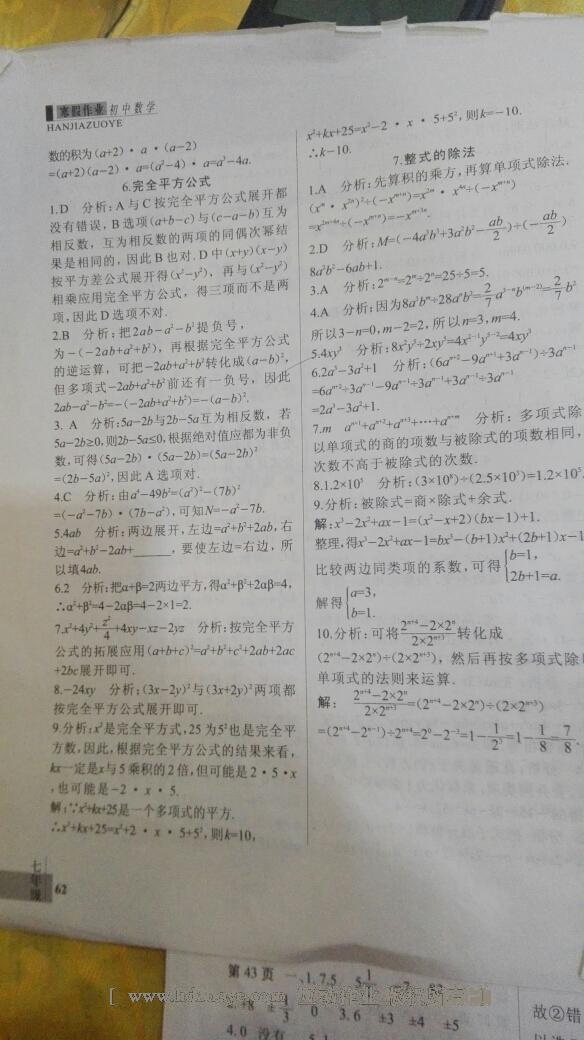 寒假作业 初中数学
HANJIAZUOYE
数的积为(a+2)·a·(a-2)
=(a+2)(a-2)·a=(a²-4)·a=a³-4a.
6.完全平方公式
1.D 分析:A与C按完全平方公式展开都
没有错误,B选项(a+b-c)与(c-a-b)互为
相反数,互为相反数的两项的同偶次幂结
果是相同的,因此B也对.D中(x+y)(x-y)
按平方差公式展开得(x²-y²),再与(x²-y²)
相乘应用完全平方公式,得三项而不是两
项,因此D选项不对.
2.B 分析:把2ab-a²-b²提负号,
为-(-2ab+a²+b²),再根据完全平方公式
的逆运算,可把-2ab+a²+b²转化成(a-b)²,
但多项式-2ab+a²+b²前还有一负号,因此
2ab-a²-b²=-(-2ab+a²+b²)=-(a-b)².
3.A 分析:5a-2b与2b-5a互为相反数,若
5a-2b≥0,则2b-5a≤0,根据绝对值应都为非负
数,可得(5a-2b)·(5a-2b)=(5a-2b)²
=(2b-5a)²,因此A选项对.
4.C 分析:由a⁴-49b²=(a²)²-(7b)²
=(-a²-7b)·(7b-a²),可知N=-a²-7b.
5.4ab 分析:两边展开,左边=a²+b²+2ab,右
边=a²+b²-2ab+______,要使左边=右边,所
以填4ab.
6.2 分析:把α+β=2两边平方,得α²+β²+2αβ=4,
∴α²+β²=4-2αβ=4-2×1=2.
7.x²+4y²+z²/4+4xy-xz-2yz 分析:按完全平方
公式的拓展应用(a+b+c)²=a²+b²+c²+2ab+2ac
+2bc展开即可.
8.-24xy 分析:(3x-2y)²与(3x+2y)²两项都
按完全平方公式展开即可.
9.分析:x²是完全平方式,25为5²也是完全平
方数,因此,根据完全平方公式的结果来看,
kx一定是x与5乘积的2倍,但可能是2·5·x
,也可能是-2·x·5.
解:∵x²+kx+25是一个多项式的平方.
∴x²+kx+25=x²+2·x·5+5²,则k=10,
七年级
62
x²+kx+25=x²-2·x·5+5²,则k=-10.
∴k-10.
7.整式的除法
1.A 分析:先算积的乘方,再算单项式除法.
(xᵐ·x²ⁿ)²÷(-xᵐ⁺ⁿ)=x²ᵐ·x⁴ⁿ÷(-xᵐ⁺ⁿ)
=x²ᵐ⁺⁴ⁿ÷(-xᵐ⁺ⁿ)=-xᵐ⁺³ⁿ.
2.D 分析:M=(-4a³b³+3a²b²-ab/2)÷(-ab/2)
8a²b²-6ab+1.
3.A 分析:2ᵐ⁻ⁿ=2ᵐ÷2ⁿ=25÷5=5.
4.A 分析:因为8a³bᵐ÷28aⁿb²=2/7a³⁻ⁿb⁽ᵐ⁻²⁾=2/7b²
所以3-n=0,m-2=2,所以n=3,m=4.
5.4xy³ 分析:8x²y⁵÷2xy²=4x²⁻¹y⁵⁻²=4xy³
6.2a³-3a²+1 分析:(6aⁿ⁺²-9aⁿ⁺¹+3aⁿ⁻¹)÷3aⁿ⁻¹
=6aⁿ⁺²÷3aⁿ⁻¹-9aⁿ⁺¹÷3aⁿ⁻¹+3aⁿ⁻¹÷3aⁿ⁻¹
=2a³-3a²+1.
7.m aⁿ⁺¹+aⁿ⁺²+aⁿ⁺³+…+aⁿ⁺ᵐ 分析:多项式除
以单项式的商的项数与被除式的项数相同,
次数不高于被除式的次数.
8.1.2×10³ 分析:(3×10⁸)÷(2.5×10⁵)=1.2×10³
9.分析:被除式=商×除式+余式.
解:x³-2x²+ax-1=(x²-x+2)(bx-1)+1.
整理,得x³-2x²+ax-1=bx³-(b+1)x²+(2b+1)x-1
比较两边同类项的系数,可得{b=1, 2b+1=a.
解得{a=3, b=1.
10.分析:可将(2ⁿ⁺⁴-2×2ⁿ)/(2×2ⁿ⁺³)转化成
(2ⁿ⁺⁴-2×2ⁿ)÷(2×2ⁿ⁺³),然后再按多项式除
单项式的法则来运算.
解:(2ⁿ⁺⁴-2×2ⁿ)/(2×2ⁿ⁺³)=(2ⁿ⁺⁴-2×2ⁿ)÷(2×2ⁿ⁺³)
=(2ⁿ⁺⁴-2ⁿ⁺¹)÷2ⁿ⁺⁴=2⁰-2⁻³=1-1/2³=1-1/8=7/8.
第43页 一、1.7.5
0 3.6 ±3 ±4 ±5
4.0 没有
故②错